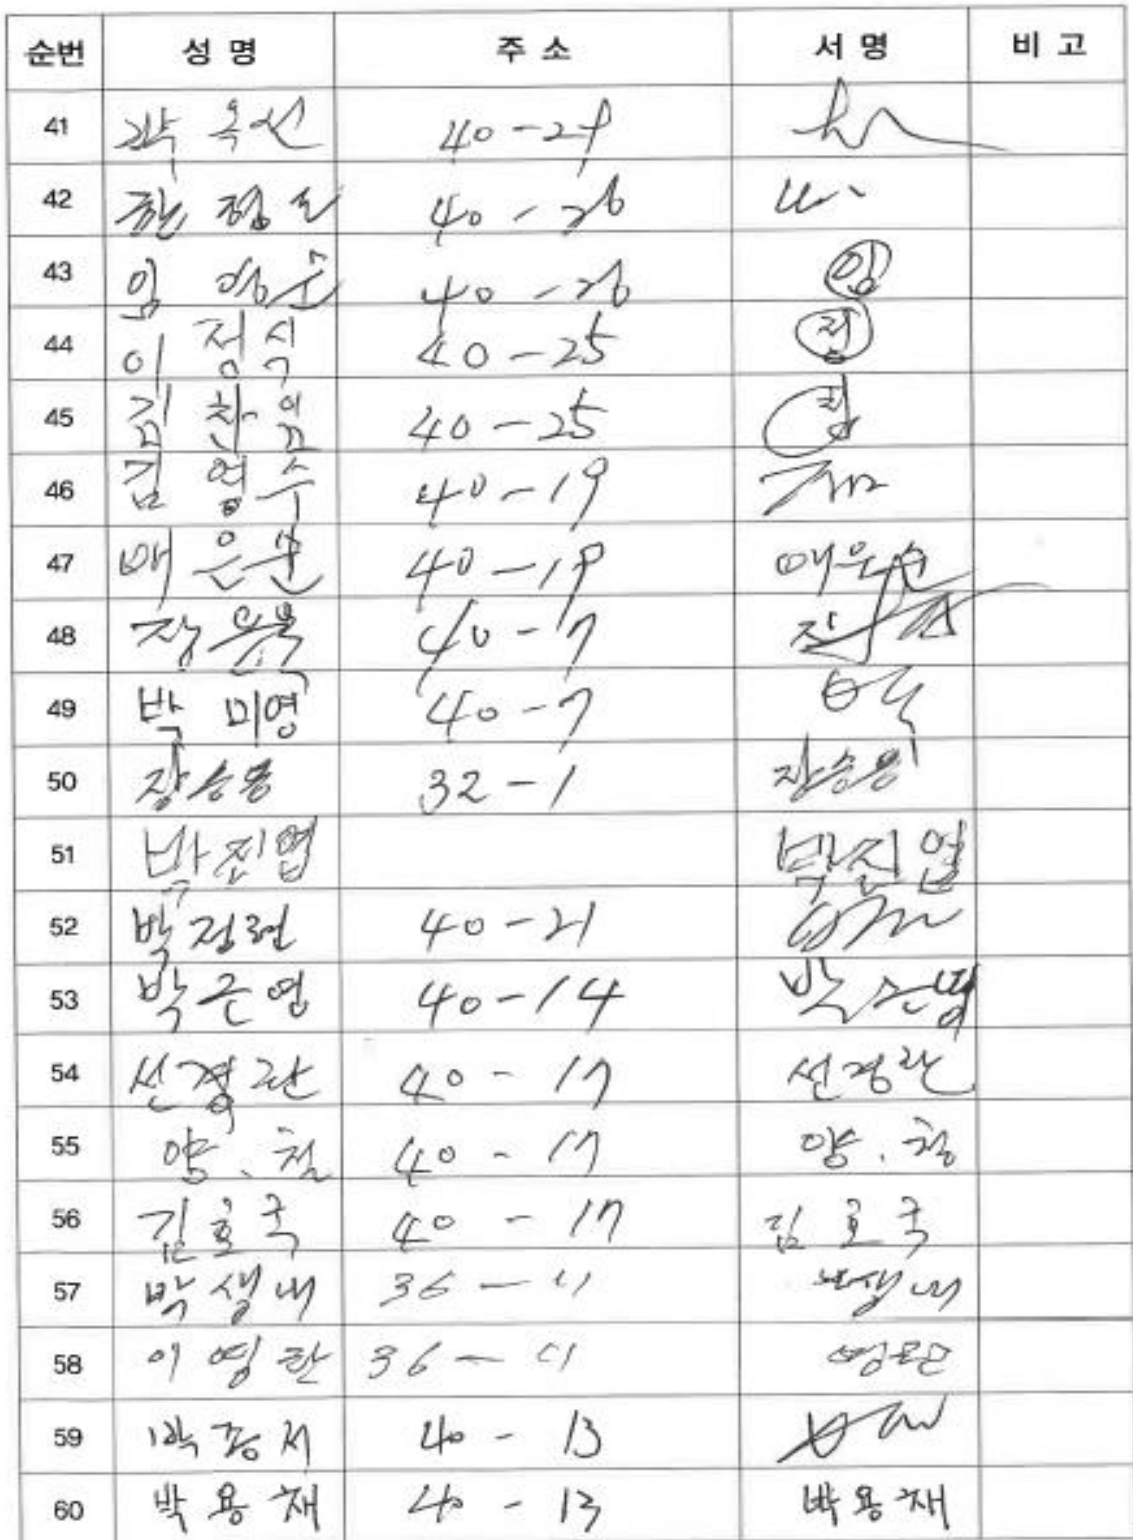 순번 성명 주소 서명 비고
41 곽옥선 40-29
42 40-26
43 임 40-26 임
44 이정식 40-25 정
45 김 40-25
46 김영수 40-19
47 배은순 40-19 배은순
48 장 40-7
49 박미영 40-7
50 장승용 32-1 장승용
51 박진엽 박진엽
52 박정련 40-21
53 박근영 40-14 박근영
54 선경란 40-17 선경란
55 양.철 40-17 양.철
56 김호국 40-17 김호국
57 박생내 36-11 박생내
58 이영란 36-11 영란
59 박종서 40-13
60 박용재 40-13 박용재